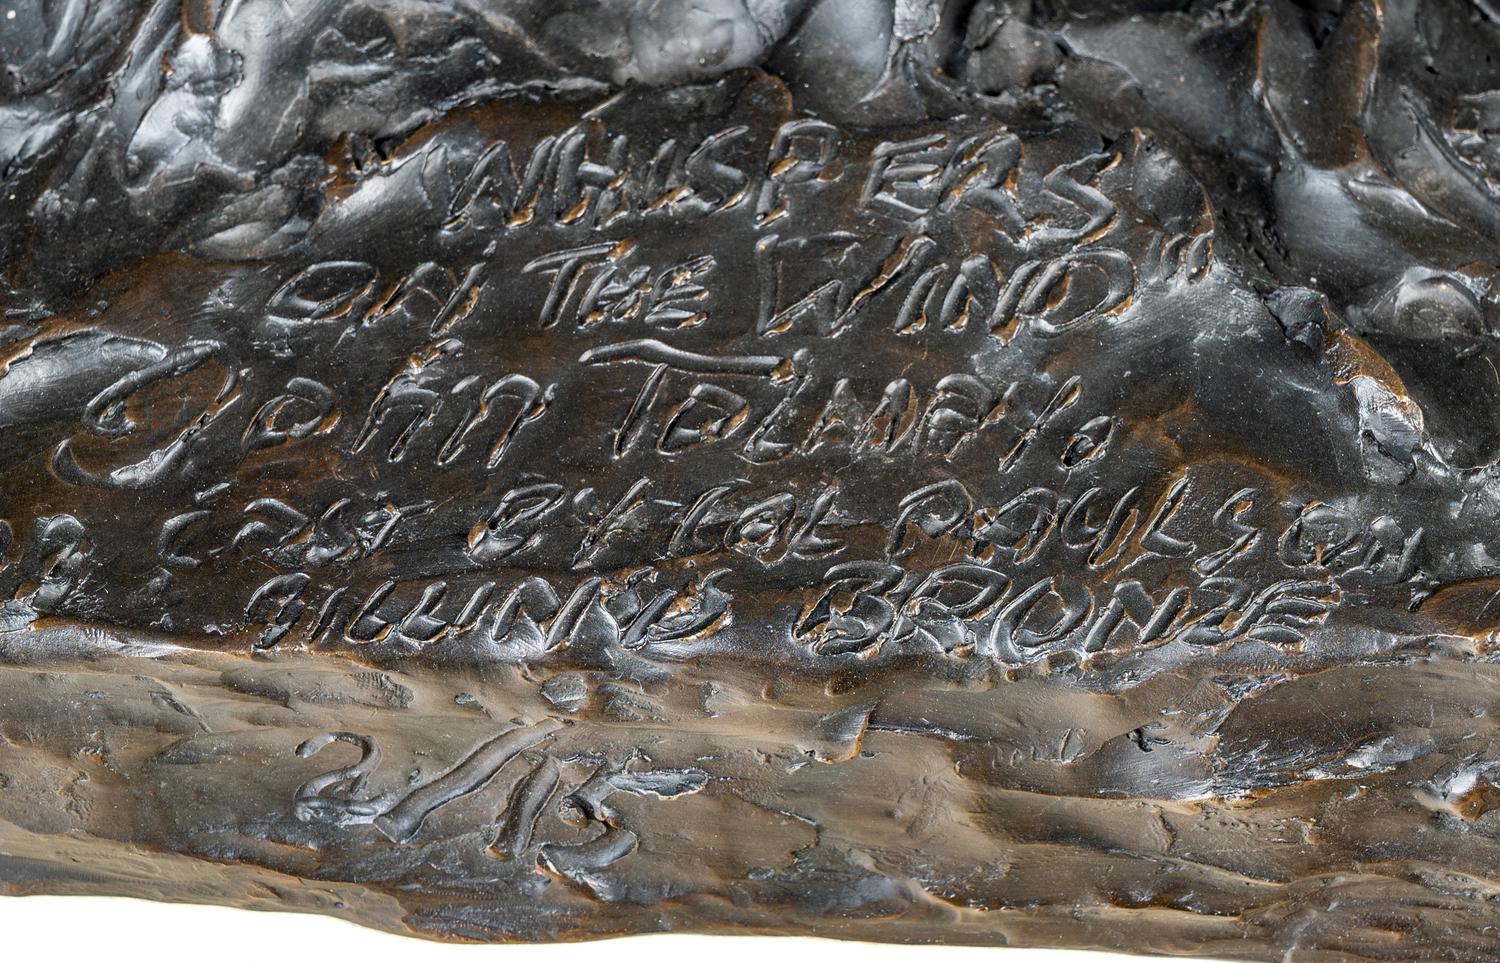 "WHISPERS
ON THE WIND"
John TOLMAY
CAST BY CAL PAULSON
BILLINGS BRONZE
2/15